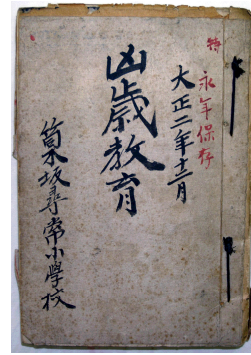 特
永年保存
大正二年十二月
凶歳教育
筒木坂尋常小學校